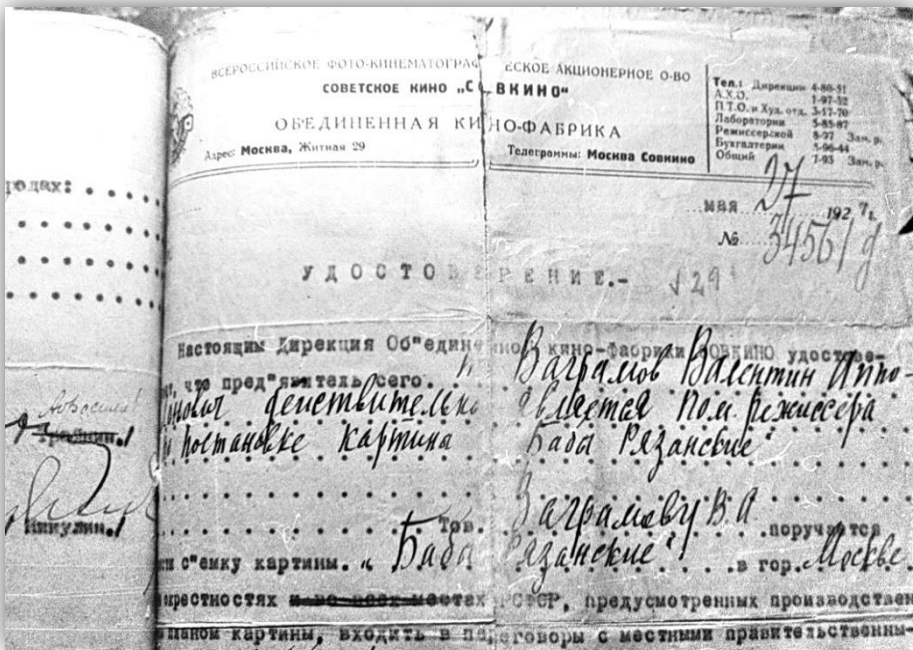 ВСЕРОССИЙСКОЕ ФОТО-КИНЕМАТОГРАФ ЕСКОЕ АКЦИОНЕРНОЕ О-ВО
СОВЕТСКОЕ КИНО „С ВКИНО"
ОБ'ЕДИНЕННАЯ КИНО-ФАБРИКА
Адрес: Москва, Житная 29
Телеграммы: Москва Совкино
Тел.: Дирекции 4-80-51
А.Х.О. 1-97-52
П.Т.О. и Худ. отд. 3-17-70
Лаборатории 5-85-87
Режиссерской 8-97 Зам. р.
Бухгалтерии 5-96-44
Общий 1-93 Зам. р.
мая 27 1927г.
№ 3456/д
УДОСТОВЕРЕНИЕ.-
родах:
Настоящим Дирекция Об"един нной кино-фабрики СОВКИНО удостове-
что пред"явитель сего. Ваграмов Валентин Аппо-
онович действительно является пом. режиссера
постановке картина Бабы Рязанские"
Тов. Ваграмову ВА поручается
с"емку картины. „Бабы Рязанские" в гор. Москве
окрестностях и во всех местах РСФСР, предусмотренных производствен
планом картины, входить в переговоры с местными правительственны-
Никулин./